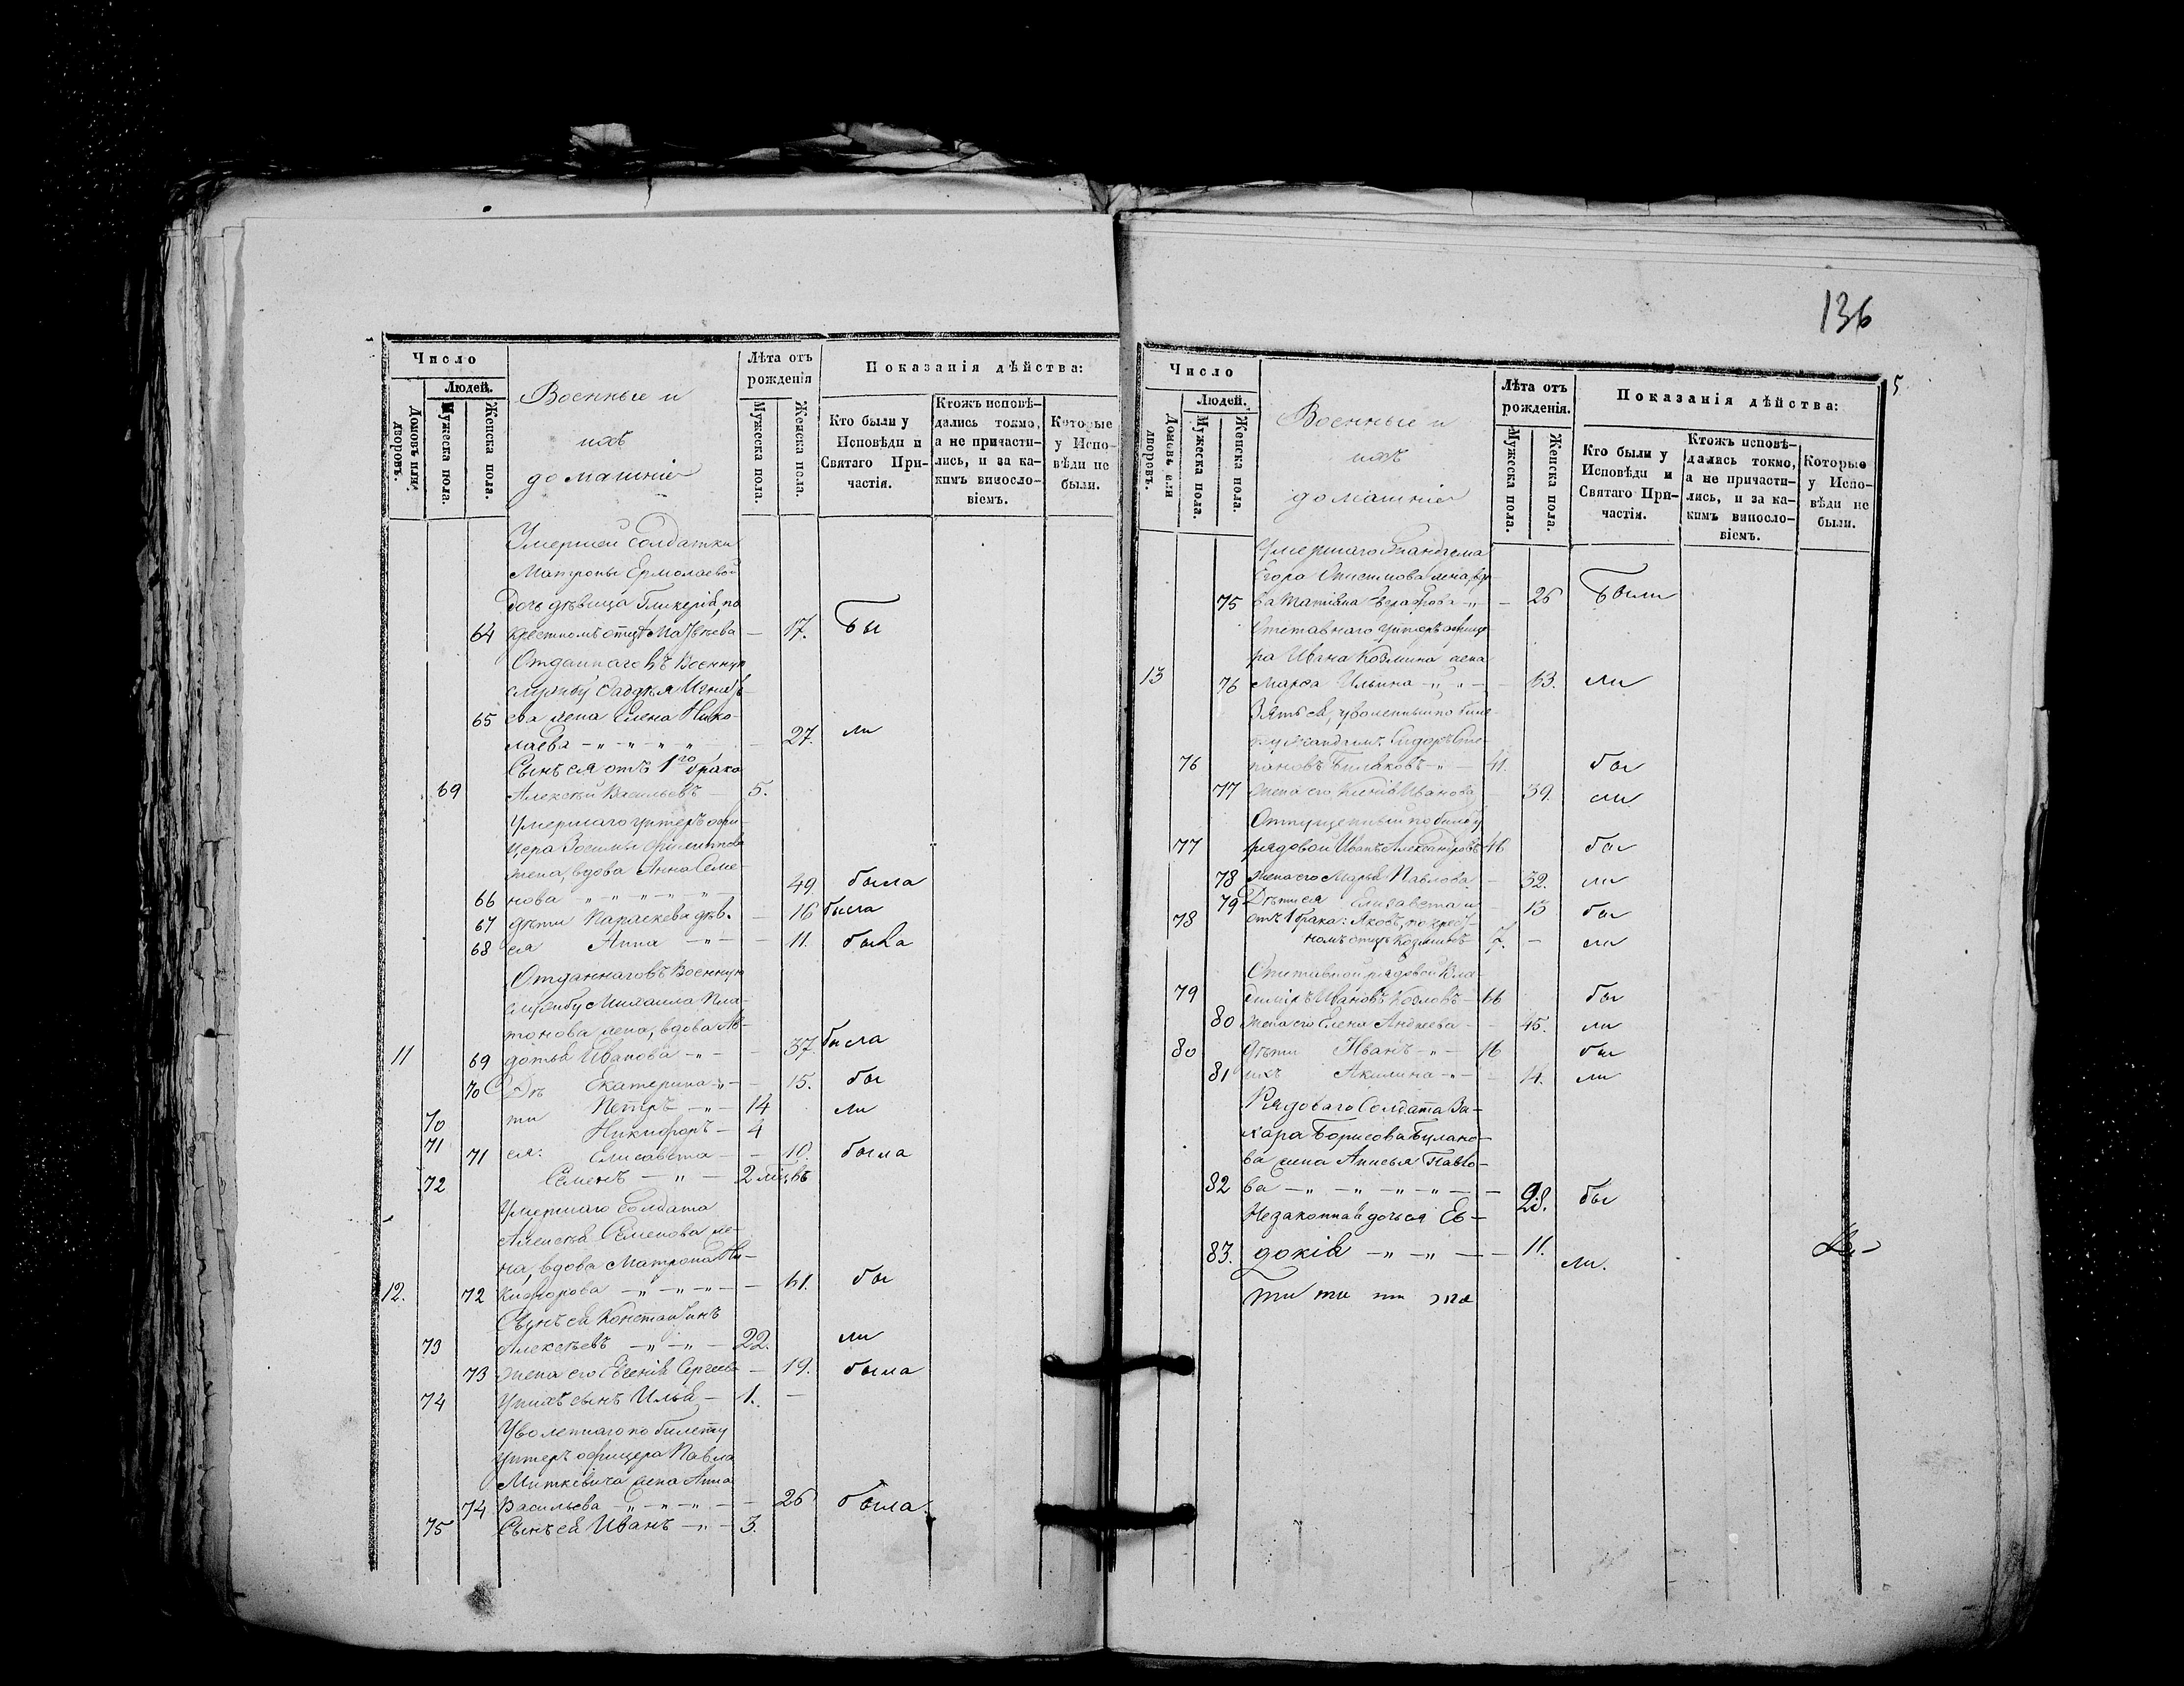 Число
Людей.
Домовъ или дворовъ.
Мужеска пола.
Женска пола.
Военные и
ихъ
домашніе
Лѣта отъ рожденія
Мужеска пола.
Женска пола.
Показанія дѣйства:
Кто были у Исповѣди и Святаго Причастія.
Ктожъ исповѣдались токмо, а не причастились, и за какимъ винословіемъ.
Которые у Исповѣди не были.
Умершей Солдатки
Матроны Ермолаевой
Дочь дѣвица Гликерія, по
64 крестномъ отцѣ Матвѣева — 17. Бы
Отданнаго въ Военную
службу Савелья Игнатье-
65 ва жена Елена Нико-
лаева — 27. ли
Сынъ ея отъ 1го брака
69 Алексѣй Васильевъ — 5.
Умершаго унтеръ офи-
цера Зосимы Филиппова
жена, вдова Анна Семе-
66 нова — 49. была
67 дѣти Параскева дѣв. — 16 была
68 ея Анна — 11. была
Отданнаго въ Военную
службу Михаила Пла-
тонова жена, вдова Ав-
11 69 дотья Иванова — 37. была
70 Дѣ Екатерина — 15. бы
70 ти Петръ — 14 ли
71 Никифоръ — 4
71 ея: Елисавета — 10. была
72 Семенъ — 2 мѣ
Умершаго Солдата
Алексѣя Семенова же-
на, вдова Матрона Ни-
12. 72 кифорова — 61. бы
Сынъ ея Константинъ
73 Алексѣевъ — 22. ли
73 жена его Евгенія Сергеева — 19. была
74 У нихъ сынъ Илья — 1.
Уволеннаго по билету
унтеръ офицера Павла
Миткевича жена Анна
74 Васильева — 26 была.
75 Сынъ ея Иванъ — 3.
136
5
Число
Людей.
Домовъ или дворовъ.
Мужеска пола.
Женска пола.
Военные и
ихъ
домашніе
Лѣта отъ рожденія.
Мужеска пола.
Женска пола.
Показанія дѣйства:
Кто были у Исповѣди и Святаго Причастія.
Ктожъ исповѣдались токмо, а не причастились, и за какимъ винословіемъ.
Которые у Исповѣди не были.
Умершаго Жандарма
Егора Онисимова жена, вдо-
75 ва Матіяна — 26 Были
Отставнаго унтеръ офице-
ра Ивана Козмина жена
13 76 Марѳа Ильина — 63. ли
Зять ея, уволенный по биле-
ту жандармъ Сидоръ Сте-
76 пановъ — 41. бы
77 жена его Иванова — 39. ли
Отпущенный по билету
77 рядовой Иванъ Александровъ 46 бы
78 Жена его Марья Павлова — 32. ли
79 Дѣти ея Елизавета и — 13 бы
78 отъ 1 брака: Яковъ, по крест-
номъ отцѣ Козминъ 7. — ли
Отставной рядовой Вла-
79 димиръ Ивановъ Козловъ — 66 бы
80 жена его Елена Андреева — 45. ли
80 дѣти Иванъ — 16 бы
81 ихъ Акилина — 14. ли
Рядоваго Солдата За-
хара Борисова Булано-
ва жена Анисья Павло-
82 ва — 28. бы
Незаконная дочь ея Ев-
83. докія — 11. ли.